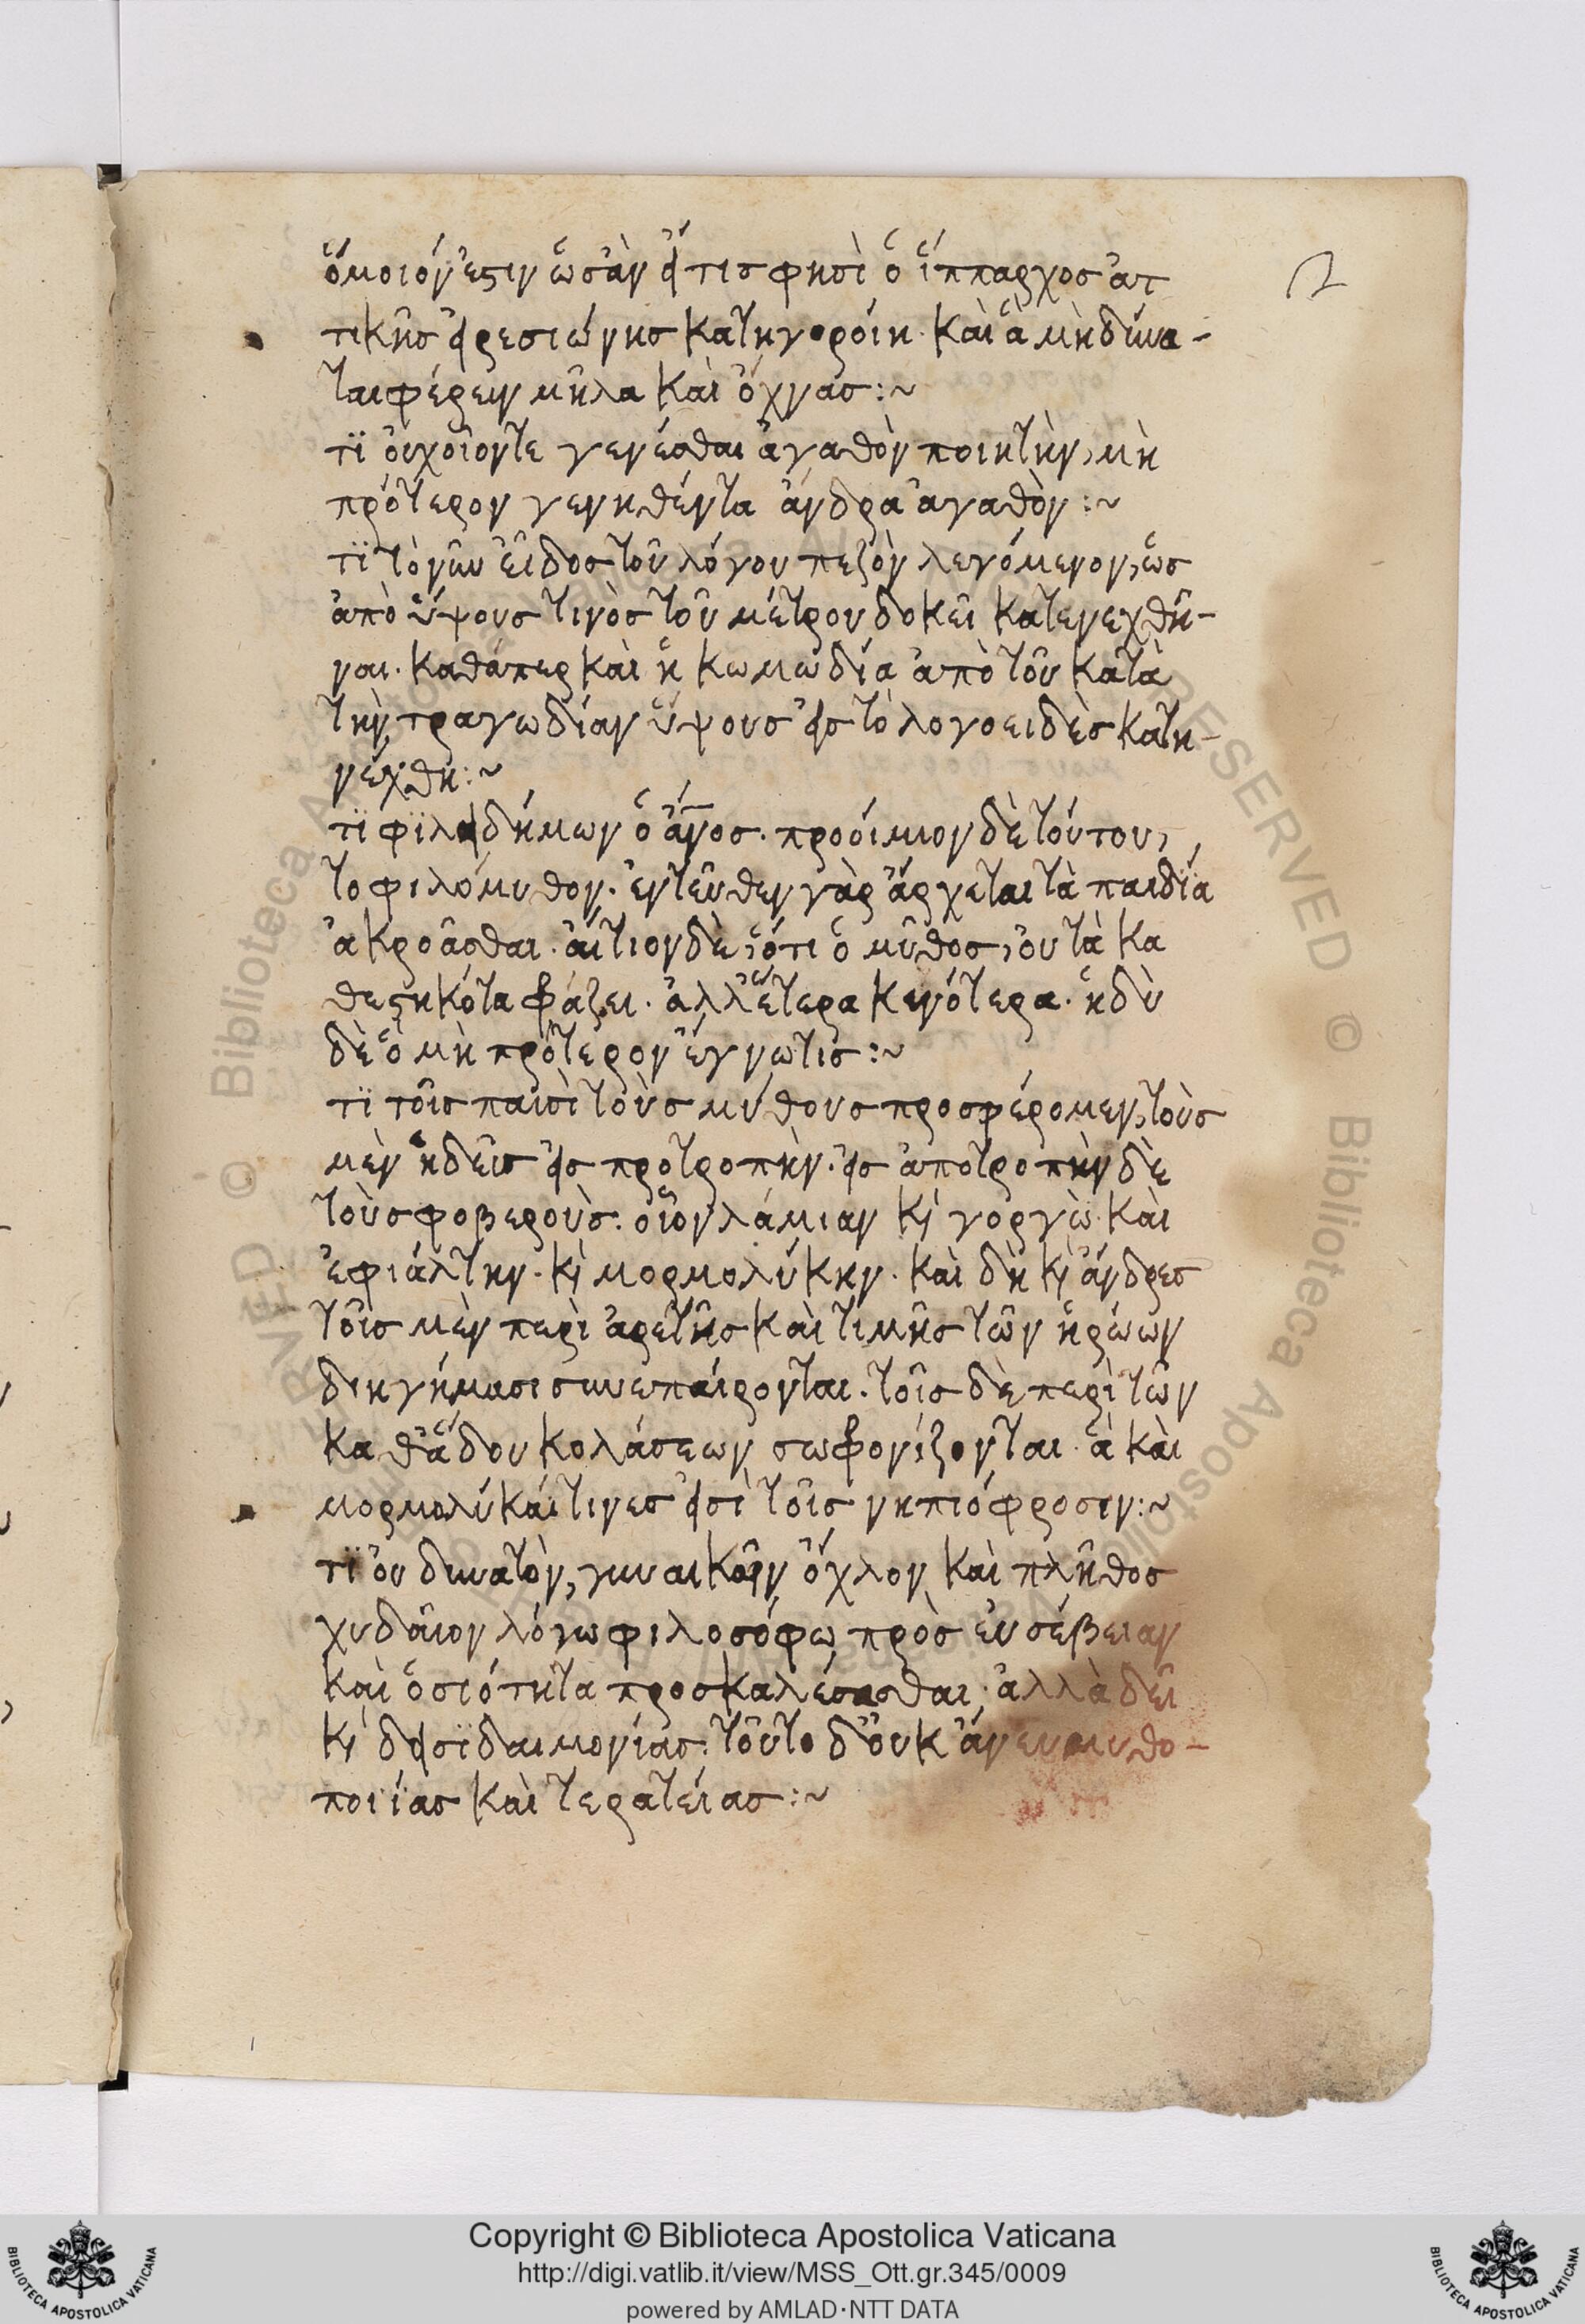 ὅμοιόν ἐστιν ὡσὰν εἴ τις φησὶ ὁ ἵππαρχος ἀτ
τικῆς εἰρεσιώνης κατηγοροίη. καὶ ἃ μὴ δύνα-
ται φέρειν μῆλα καὶ ὄχνας:~
τϊ οὐχοἷόντε γενέσθαι ἀγαθὸν ποιητὴν, μὴ
πρότερον γενηθέντα ἄνδρα ἀγαθὸν:~
τϊ τὸ νῦν εἶδος τοῦ λόγου πεζὸν λεγόμενον, ὡς
ἀπὸ ὕψους τινὸς τοῦ μέτρου δοκεῖ κατενεχθῆ-
ναι. καθάπερ καὶ ἡ κωμωδία ἀπὸ τοῦ κατὰ
τὴν τραγωδίαν ὕψους εἰς τὸ λογοειδὲς κατη-
νέχθη:~
τϊ φϊλειδήμων ὁ ἄνος. προοίμιον δὲ τούτου,
το φιλόμυθον. ἐντεῦθεν γὰρ ἄρχεται τὰ παιδία
ἀκροᾶσθαι. αἴτιον δὲ, ὅτι ὁ μῦθος, οὐ τὰ κα
θεστηκότα φράζει. ἀλλ' ἕτερα κενότερα. ἡδὺ
δὲ ὃ μὴ πρότερον ἔγνω τις:~
τϊ τοῖς παισὶ τοὺς μύθους προσφέρομεν, τοὺς
μὲν ἡδεῖς εἰς προτροπὴν. εἰς ἀποτροπὴν δὲ
τοὺς φοβεροὺς. οἷον λάμιαν κὶ γοργὼ. καὶ
ἐφιάλτην. κὶ μορμολύκην. καὶ δὴ κὶ ἄνδρες
τοῖς μὲν περὶ ἀρετῆς καὶ τιμῆς τῶν ἡρώων
διηγήμασι συνεπαίρονται. τοῖς δὲ περὶ τῶν
καθ' ἅδου κολάσεων σωφρονίζονται. ἃ καὶ
μορμολύκαί τινες εἰσὶ τοῖς νηπιόφροσιν:~
τϊ οὐ δυνατὸν, γυναικῶν ὄχλον καὶ πλῆθος
χυδαῖον λόγω φιλοσόφω πρὸς εὐσέβειαν
καὶ ὁσιότητα προσκαλέσασθαι. ἀλλὰ δεῖ
κὶ δεισϊδαιμονίας. τοῦτο δ' οὐκ ἄνευ μυθο-
ποιίας καὶ τερατείας:~
Copyright © Biblioteca Apostolica Vaticana
http://digi.vatlib.it/view/MSS_Ott.gr.345/0009
powered by AMLAD·NTT DATA